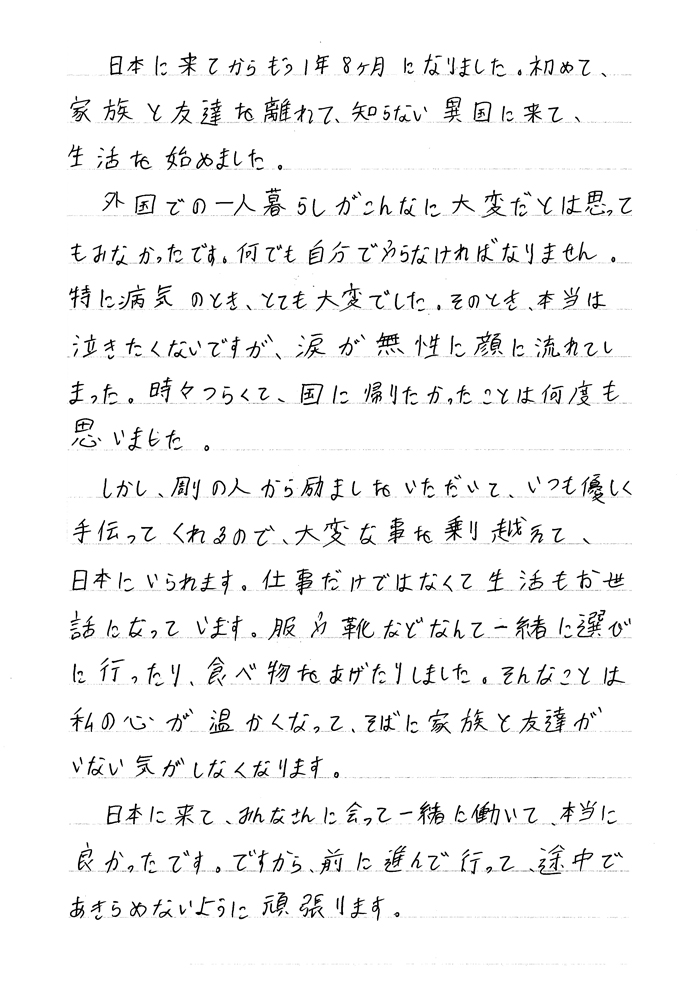 日本に来てからもう1年8ヶ月になりました。初めて、
家族と友達を離れて、知らない異国に来て、
生活を始めました。
外国での一人暮らしがこんなに大変だとは思って
もみなかったです。何でも自分でやらなければなりません。
特に病気のとき、とても大変でした。そのとき、本当は
泣きたくないですが、涙が無性に顔に流れてし
まった。時々つらくて、国に帰りたかったことは何度も
思いました。
しかし、剛の人から励ましをいただいて、いつも優しく
手伝ってくれるので、大変な事を乗り越えて、
日本にいられます。仕事だけではなくて生活もお世
話になっています。服や靴などなんて一緒に選び
に行ったり、食べ物をあげたりしました。そんなことは
私の心が温かくなって、そばに家族と友達が
いない気がしなくなります。
日本に来て、みんなさんに会って一緒に働いて、本当に
良かったです。ですから、前に進んで行って、途中で
あきらめないように頑張ります。